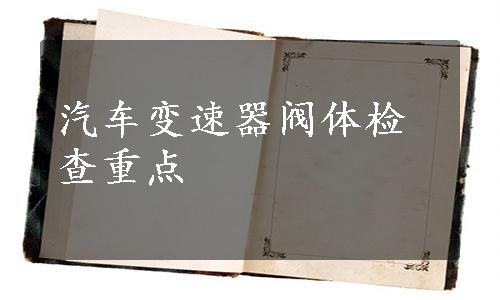 汽车变速器阀体检
查重点